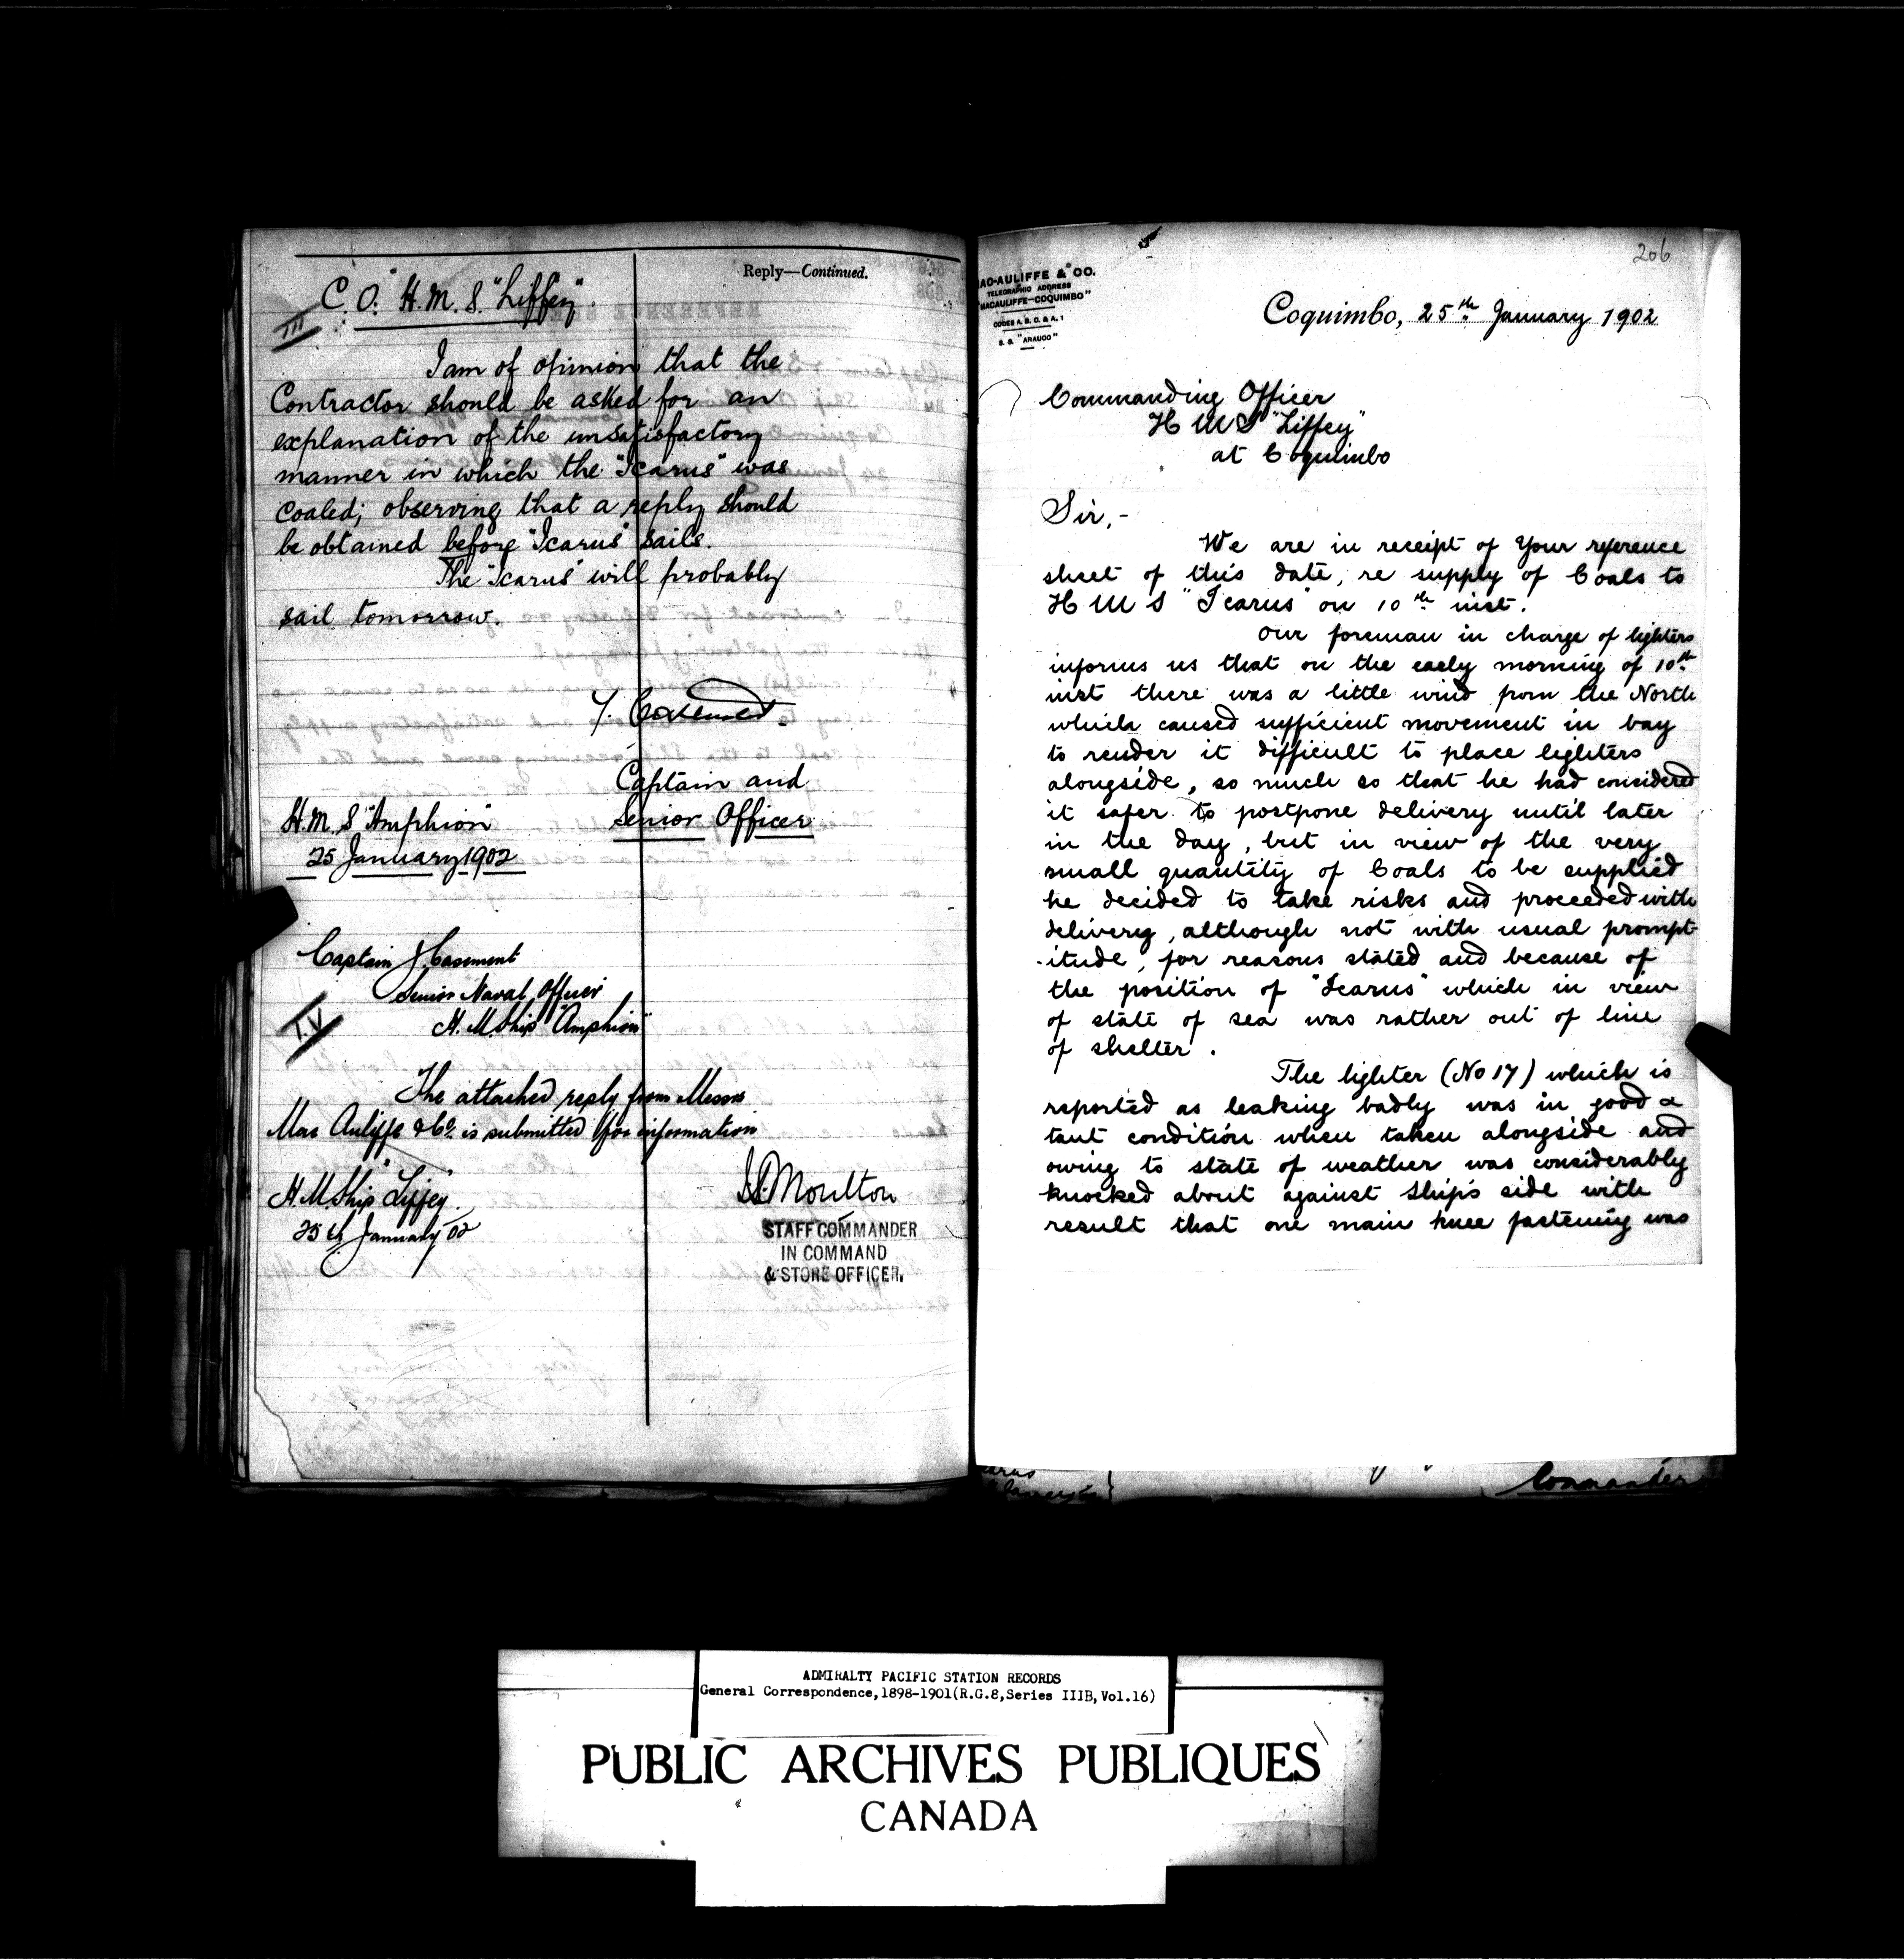 Reply—Continued.
III
C. O. H.M.S. "Liffey"
I am of opinion that the
Contractor should be asked for an
explanation of the unsatisfactory
manner in which the "Icarus" was
coaled; observing that a reply should
be obtained before "Icarus" sails.
The "Icarus" will probably
sail tomorrow.
J. Casement
Captain and
Senior Officer
H.M.S "Amphion"
25 January 1902
Captain J Casement
Senior Naval Officer
IV
H.M. Ship "Amphion"
The attached reply from Messrs
Mac Auliffe & Co. is submitted for information
H.M. Ship "Liffey".
25th January 02
Moulton
STAFF COMMANDER
IN COMMAND
& STORE OFFICER.
206
MAC-AULIFFE & CO.
TELEGRAPHIC ADDRESS
"MACAULIFFE-COQUIMBO"
CODES A. B. C. & A. 1
S. S. "ARAUCO"
Coquimbo, 25th January 1902
Commanding Officer
H M S "Liffey"
at Coquimbo
Sir,-
We are in receipt of Your reference
sheet of this date, re supply of Coals to
H M S "Icarus" on 10th inst.
Our foreman in charge of lighters
informs us that on the early morning of 10th
inst there was a little wind from the North
which caused sufficient movement in bay
to render it difficult to place lighters
alongside, so much so that he had considered
it safer to postpone delivery until later
in the day, but in view of the very
small quantity of Coals to be supplied
he decided to take risks and proceeded with
delivery, although not with usual prompt-
-itude, for reasons stated and because of
the position of "Icarus" which in view
of state of sea was rather out of line
of shelter.
The lighter (No 17) which is
reported as leaking badly was in good &
taut condition when taken alongside and
owing to state of weather was considerably
knocked about against ship's side with
result that one main knee fastening was
Commander
ADMIRALTY PACIFIC STATION RECORDS
General Correspondence,1898-1901(R.G.8,Series IIIB,Vol.16)
PUBLIC ARCHIVES PUBLIQUES
CANADA